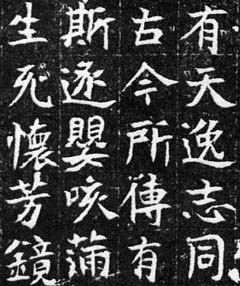 有天逸志同
古今所傳有
斯逐嬰咳
生死懷芳鏡